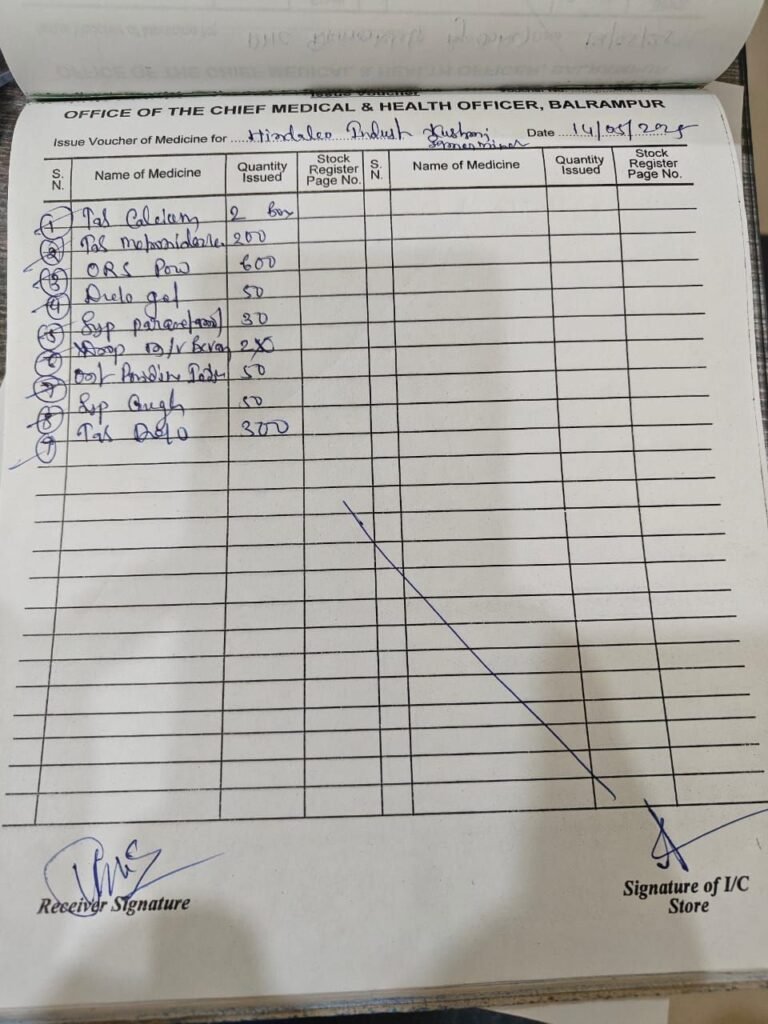 Issue Voucher
OFFICE OF THE CHIEF MEDICAL & HEALTH OFFICER, BALRAMPUR
Issue Voucher of Medicine for Hindalco Indust Kusmi Date 14/05/2025
S. N. Name of Medicine Quantity Issued Stock Register Page No. S. N. Name of Medicine Quantity Issued Stock Register Page No.
1 Tab Calcium 2 Box
2 Tab 200
3 ORS Pow 600
4 Diclo gel 50
5 Syp 30
6
7 50
8 Syp Cough 50
9 Tab Diclo 300
Receiver Signature
Signature of I/C
Store